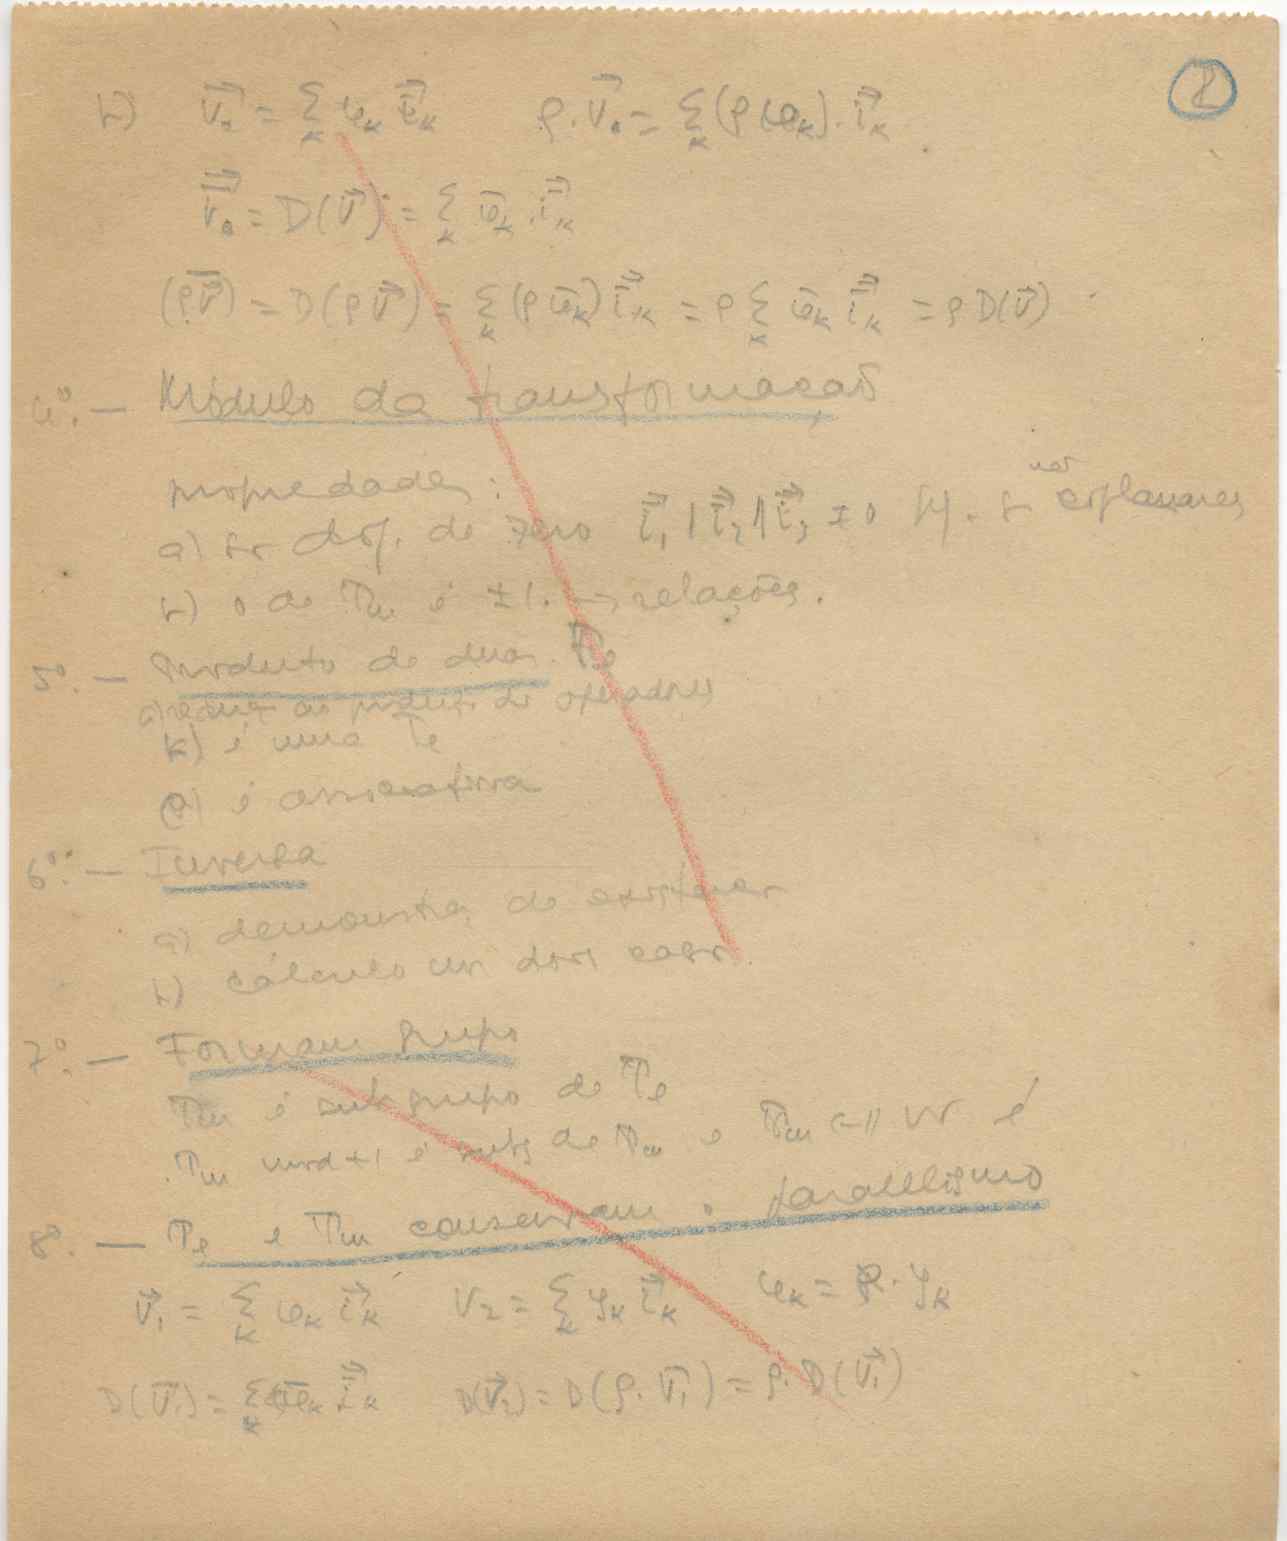 2
b) V⃗₀ = Σ_k φ_k i⃗_k    ρ·V⃗₀ = Σ_k (ρ φ_k)· i⃗_k
V̄⃗₀ = D(V⃗) = Σ_k φ̄_k · i̅⃗_k
(ρ V̄) = D(ρ V⃗) = Σ_k (ρ φ̄_k) i̅⃗_k = ρ Σ_k φ̄_k i̅⃗_k = ρ D(V⃗)
4º. — Módulo da transformação
propriedades:
a) ser dif. de zero i⃗₁ | i⃗₂ ∧ i⃗₃ ≠ 0 não coplanares
b) o de Tm é ±1. → relações.
5º. — Produto de duas Te
a) reduz ao produto de operadores
b) é uma Te
c) é associativa
6º. — Inversa
a) demonstra. de existência
b) cálculo um dois casos
7º. — Formam grupo
Tm é subgrupo de Te
Tm mod +1 é subg de Tm e Tm é
8º. — Te e Tm conservam o paralelismo
V⃗₁ = Σ_k φ_k i⃗_k    V₂ = Σ_k ψ_k i⃗_k    φ_k = ρ·ψ_k
D(V⃗₁) = Σ_k φ_k i̅⃗_k    D(V⃗₂) = D(ρ·V⃗₁) = ρ·D(V⃗₁)